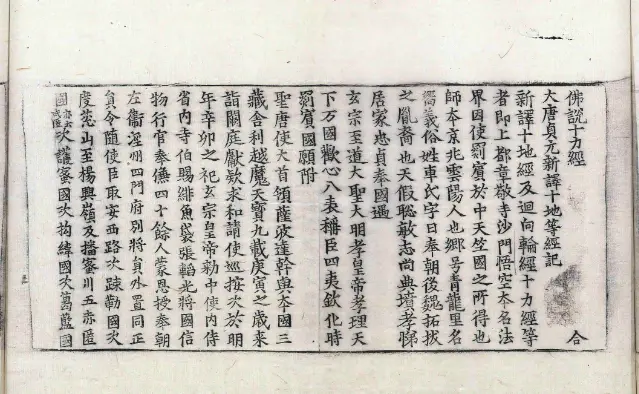 佛說十力經 合
大唐貞元新譯十地等經記
新譯十地經及迴向輪經十力經等
者即上都章敬寺沙門悟空本名法
界因使罽賓於中天竺國之所得也
師本京兆雲陽人也鄉号青龍里名
嚮義俗姓車氏字曰奉朝後魏拓拔
之胤裔也天假聰敏志尚典墳孝悌
居家忠貞奉國遇
玄宗至道大聖大明孝皇帝孝理天
下万國歡心八表稱臣四夷欽化時
罽賓國願附
聖唐使大首領薩波達幹與本國三
藏舍利越魔天寶九載庚寅之歲來
詣闕庭獻欵求和請使巡按次於明
年辛卯之祀玄宗皇帝勅中使內侍
省內寺伯賜緋魚袋張韜光將國信
物行官奉傔四十餘人蒙恩授奉朝
左衞涇州四門府別將貟外置同正
貟令隨使臣取安西路次踈勒國次
度葱山至楊興嶺及播蜜川五赤匿
國亦云式匿次護蜜國次拘緯國次葛藍國